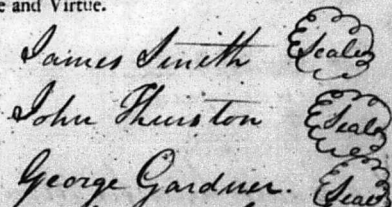 e and Virtue.
James Smith Seal
John Thurston Seal
George Gardner. Seal